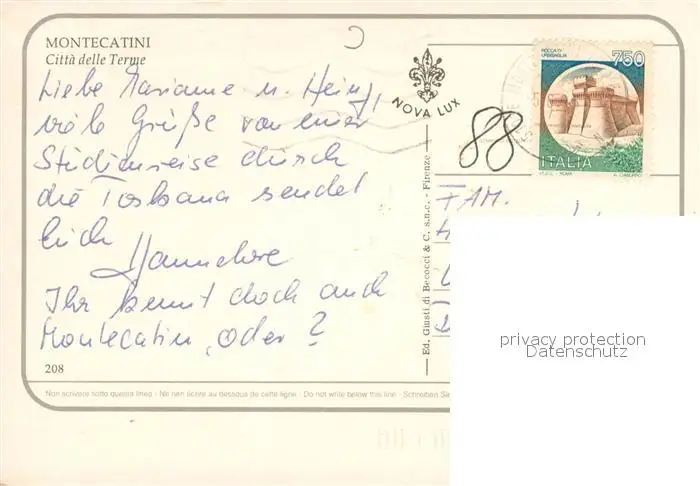 MONTECATINI
Città delle Terme
Liebe Marianne u. Heinz,
viele Grüße von einer
Studienreise durch
die Toskana sendet
Euch
Hannelore
Ihr kennt doch auch
Montecatini, oder?
208
NOVA LUX
88
ROCCA DI
URBISAGLIA
750
ITALIA
I.P.Z.S. ROMA
Ed. Giusti di Becocci & C. s.n.c. - Firenze
FAM.
Non scrivere sotto questa linea - Ne rien écrire au dessous de cette ligne - Do not write below this line - Schreiben Sie
privacy protection
Datenschutz